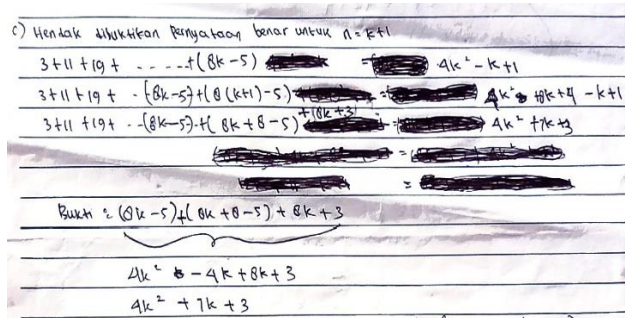 c) Hendak dibuktikan pernyataan benar untuk n = k+1
3+11+19+ ..... +(8k-5) = 4k² - k+1
3+11+19+ ..(8k-5)+(8(k+1)-5) = 4k² + 8k+4 - k+1
3+11+19+ ..(8k-5)+(8k+8-5) +(8k+3) = 4k² +7k+3
Bukti = (8k-5)+(8k+8-5) + 8k+3
4k² - 4k+8k+3
4k² +7k+3